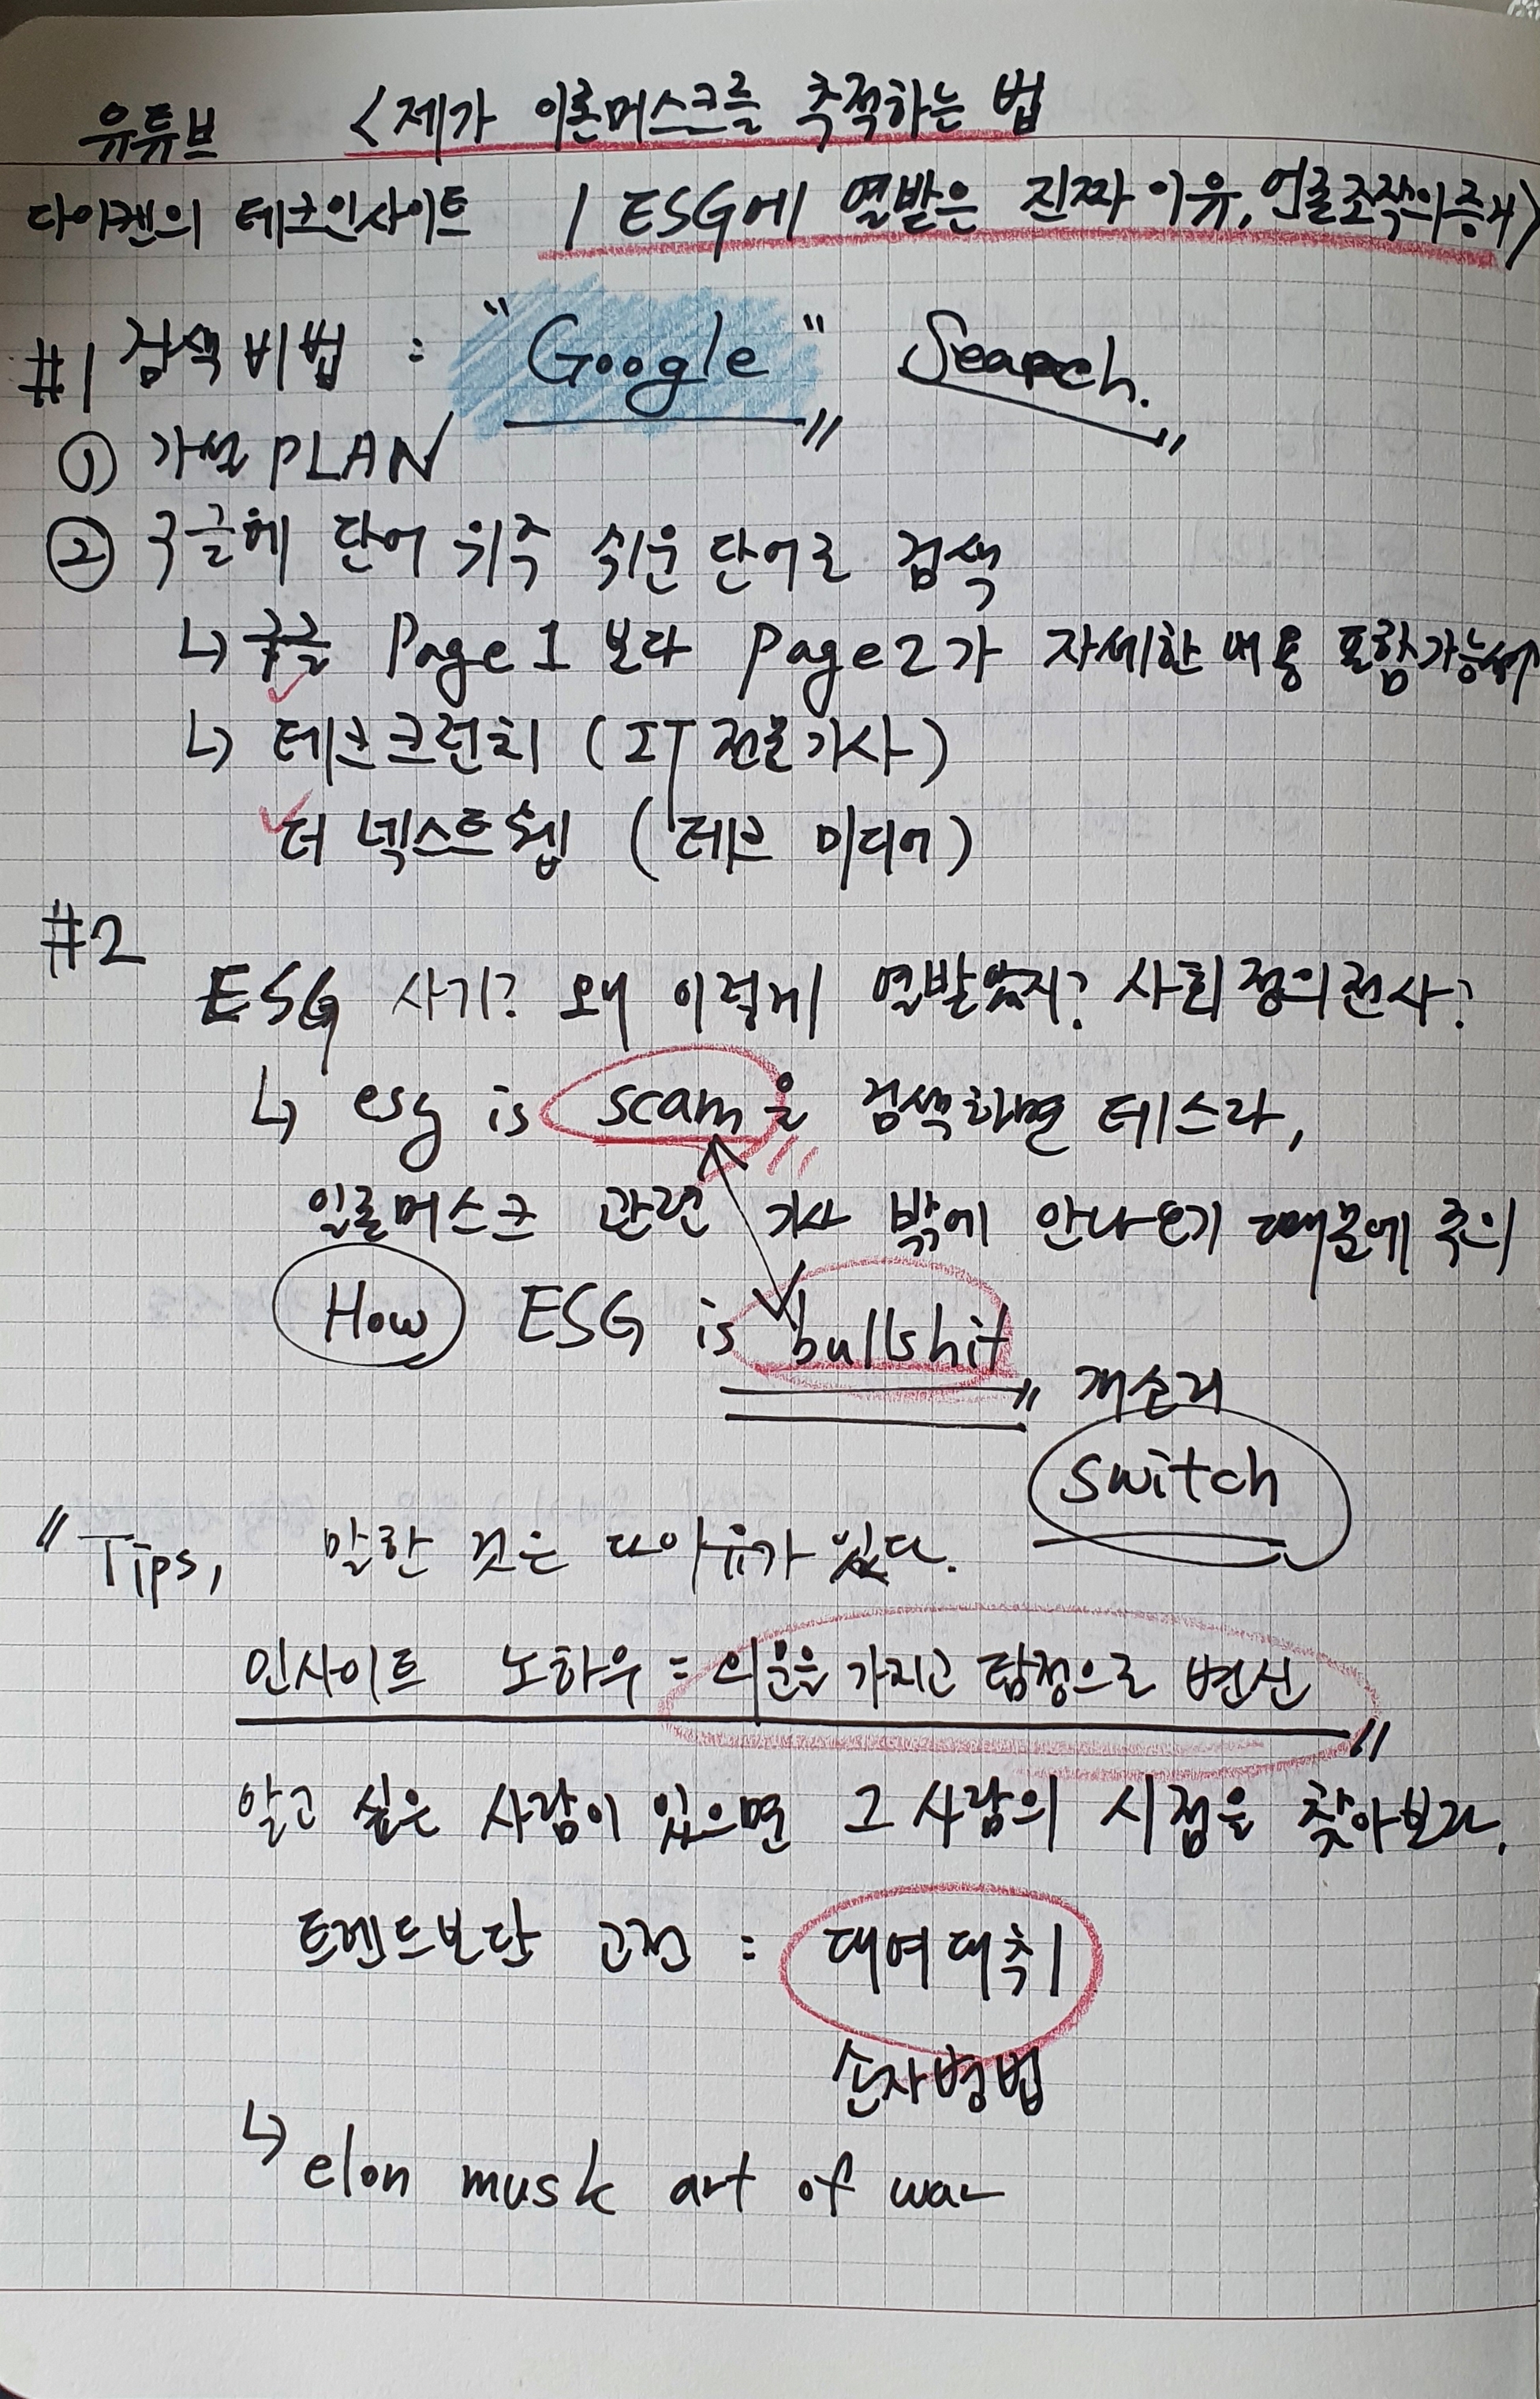 유튜브 <제가 일론머스크를 추적하는 법
다이켄의 테크인사이트 / ESG에 열받은 진짜 이유, 언론조작의 증거>
#1 검색 비법 : "Google" Search.
① 가설 PLAN
② 구글에 단어 위주 쉬운 단어로 검색
↳ 구글 Page 1 보다 page 2가 자세한 내용 포함가능성↑
↳ 테크크런치 (IT 전문기사)
더 넥스트웹 (테크 미디어)
#2
ESG 사기? 왜 이렇게 열받았지? 사회정의전사?
↳ esg is scam을 검색하면 테스라,
일론머스크 관련 기사 밖에 안나오기 때문에 주의
How ESG is bullshit
개소리
switch
"Tips, 말한 것은 다 이유가 있다.
인사이트 노하우 = 의문을 가지고 탐정으로 변신
알고 싶은 사람이 있으면 그 사람의 시점을 찾아보라.
트렌드보단 고전 : 대여대취
손자병법
↳ elon musk art of war